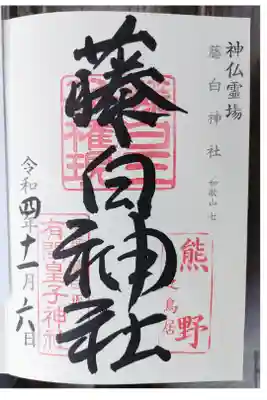 神仏霊場
藤白神社
和歌山 七
藤白神社
熊野
有間皇子神社
令和四年十一月六日